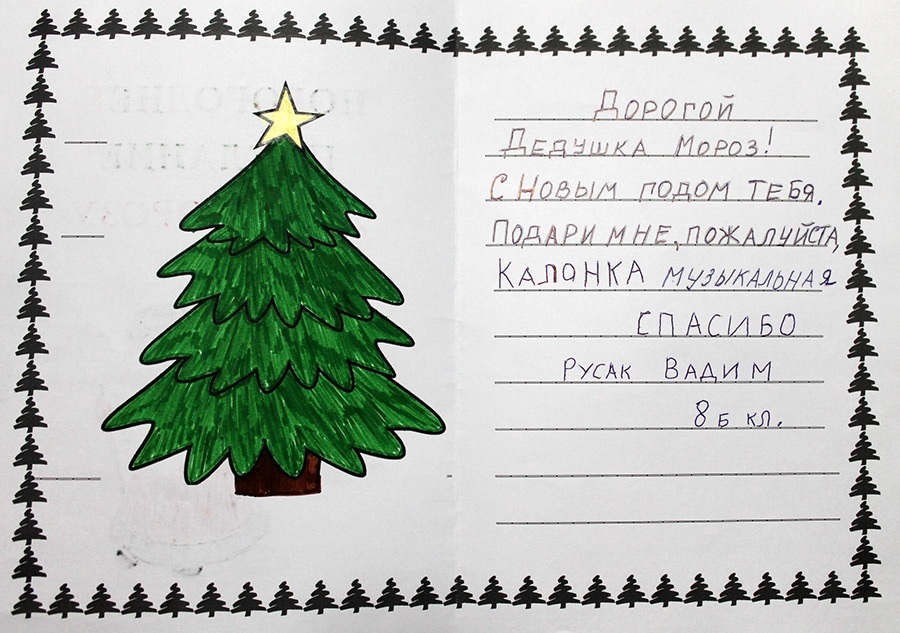 Дорогой
Дедушка Мороз!
С Новым подом тебя.
Подари мне, пожалуйста,
Калонка музыкальная
Спасибо
Русак Вадим
8 б кл.